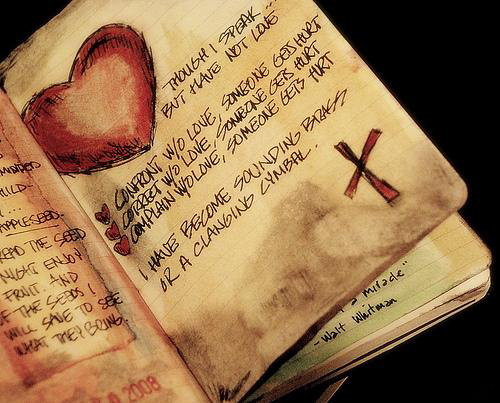 THOUGH I SPEAK...
BUT HAVE NOT LOVE
CONFRONT W/O LOVE, SOMEONE GETS HURT
CORRECT W/O LOVE, SOMEONE GETS HURT
COMPLAIN W/O LOVE, SOMEONE GETS HURT
I HAVE BECOME SOUNDING BRASS
OR A CLANGING CYMBAL.
X
APPLESEED.
THE SEED
ENJOY
FRUIT. AND
THE SEEDS I
WILL SAVE TO SEE
WHAT THEY BRING.
2008
a miracle"
- Walt Whitman